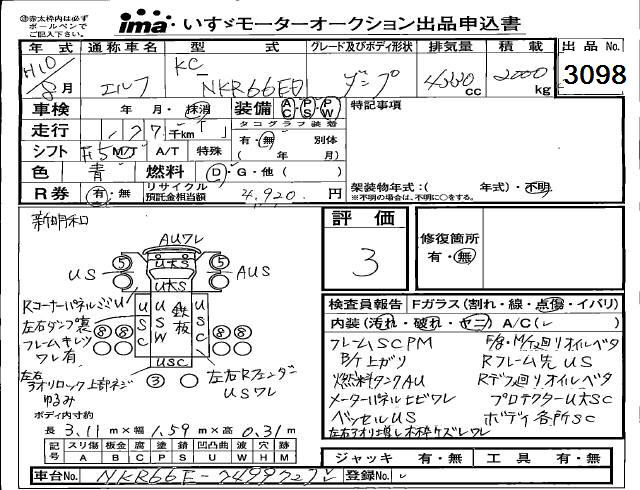 ㊟赤太枠内は必ずボールペンでご記入下さい。
ima いすゞモーターオークション出品申込書
年式 通称車名 型式 グレード及びボディ形状 排気量 積載 出品No.
H10 8月 エルフ KC- NKR66ED ダンプ 4330cc 2000kg 3098
車検 年・月・抹消 装備 AC・PS・PW 特記事項
走行 177千km タコグラフ装着
有・無 別体
シフト F5 M/T A/T 特殊 ( 年 月)
色 青 燃料 D・G・他( )
架装物年式:( 年式)・不明
※不明の場合は、不明に○をする。
R券 有・無 リサイクル預託金相当額 4,920 円
新明和
AUワレ
US U大S AUS
U大S
RコーナーパネルジU
左右ダンプ裏
フレームキレツ
ワレ有
USC USW 鉄板 USC
USC
左右
アオリロック上部ネジ
ゆるみ
左右Rフェンダー
USワレ
評価 3
修復箇所
有・無
検査員報告 Fガラス(割れ・線・点傷・イバリ)
内装(汚れ・破れ・ヤニ) A/C( )
フレームSCPM
Rフレーム先US
燃料タンクAU Rデフ廻リオイルベタ
メーターパネルヒビワレ プロテクターU大SC
ベッセルUS ボディ各所SC
ボディ内寸約
長 3.11m×幅 1.59m×高 0.31m
記号 スリ傷 板金 腐 塗 錆 凹凸曲 波 穴 跡
A B C P S U W H M
ジャッキ 有・無 工具 有・無
車台No. NKR66E-7499 登録No.